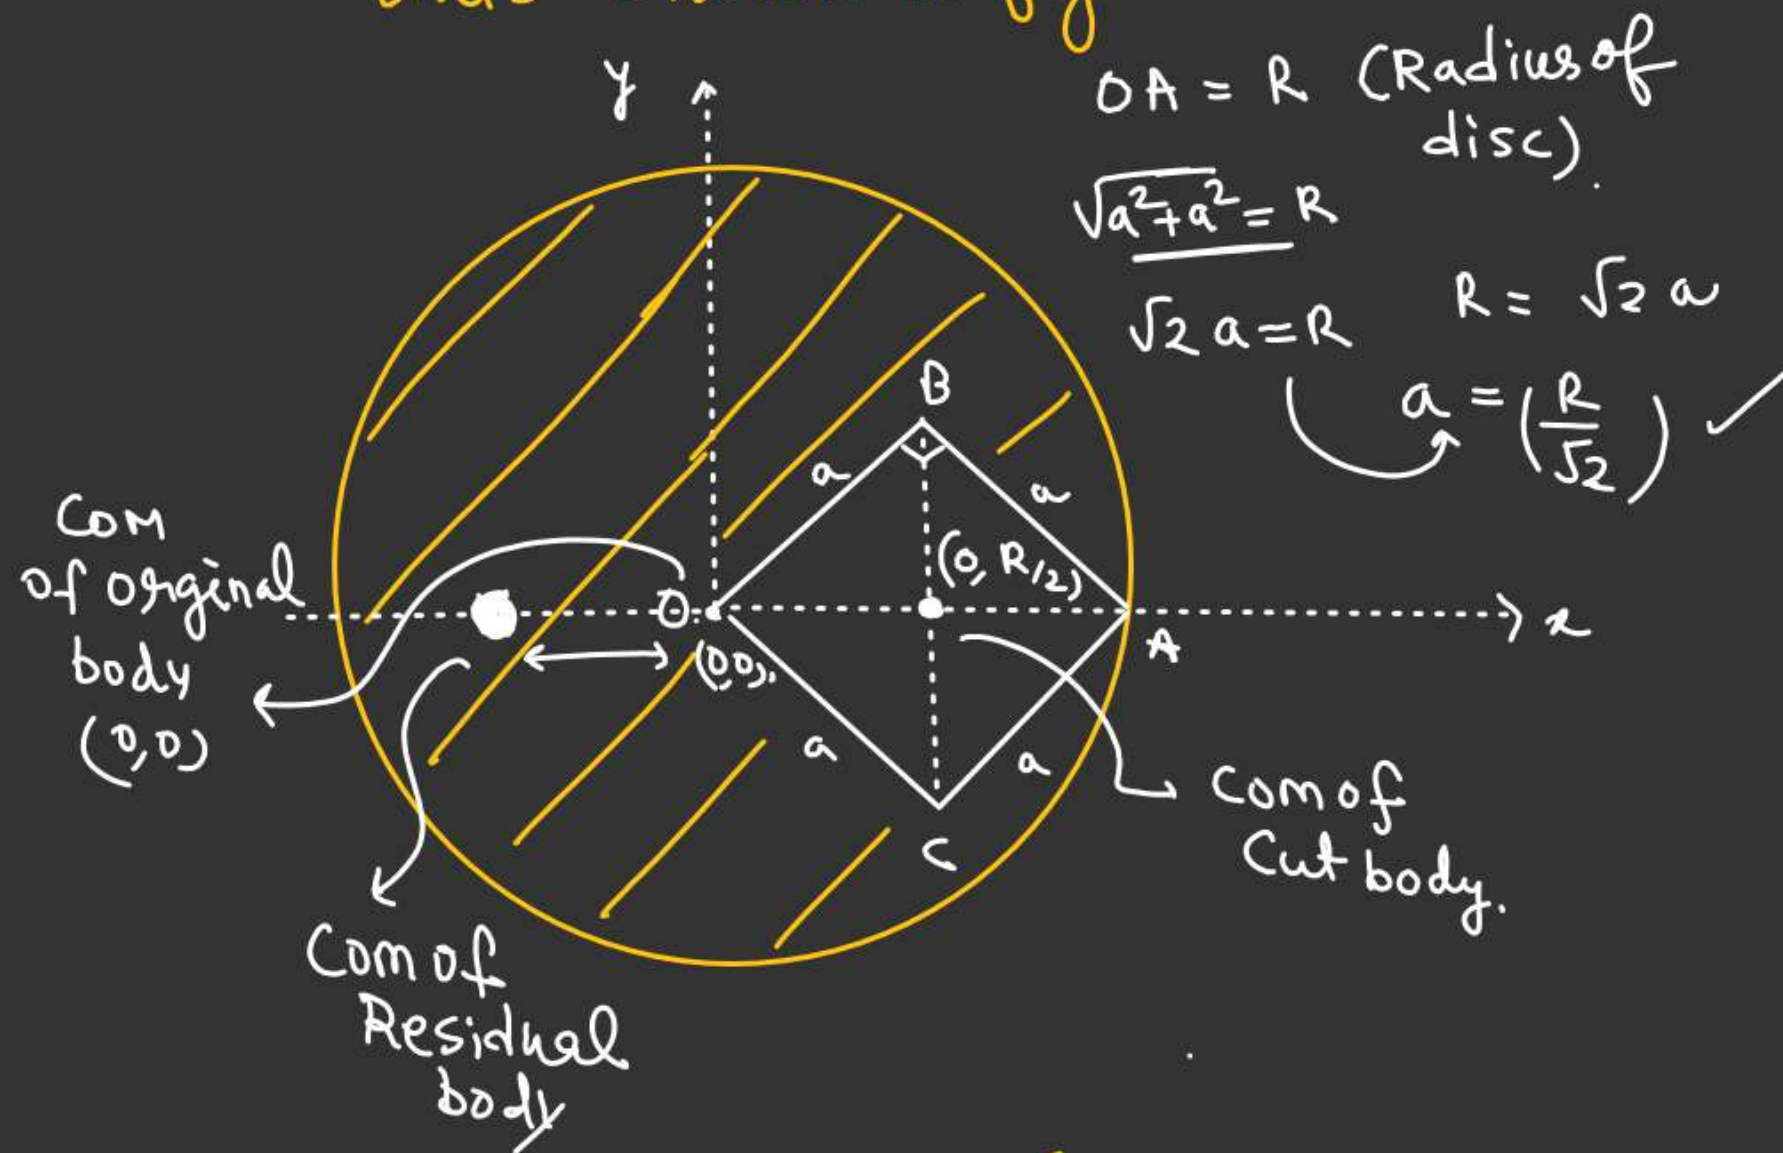 y
OA = R (Radius of
disc).
√a²+a² = R
√2 a = R
R = √2 a
a = (R/√2) ✓
B
a
a
(0, R/2)
COM
of orginal
body
(0,0)
O
(0,0)
x
A
a
a
C
Com of
Cut body.
Com of
Residual
body